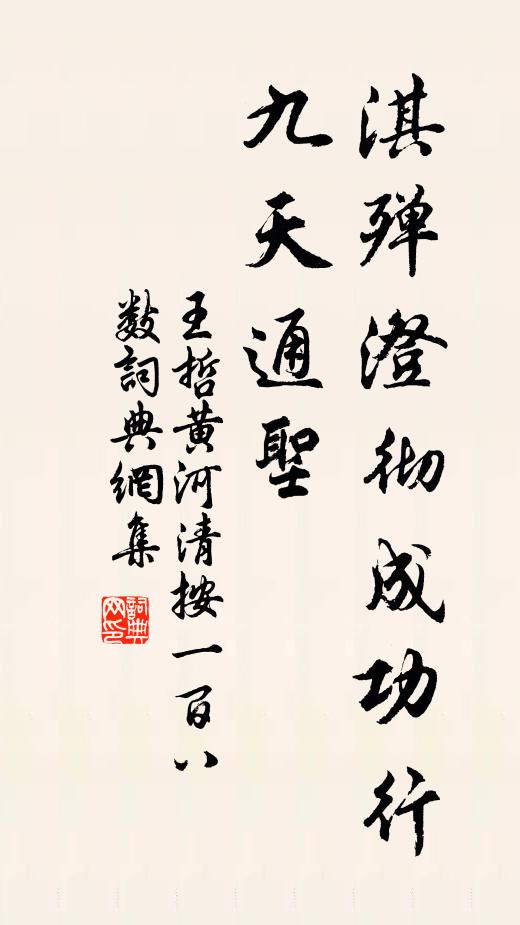 淇殫澄彻成功行
九天通聖
王哲黄河清按一百八
數詞典網集
詞典网印